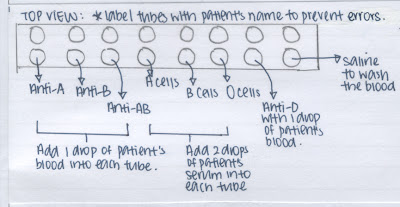 TOP VIEW: *label tubes with patient's name to prevent errors.
saline
to wash
the blood
Anti-A
Anti-B
Anti-AB
A cells
B cells
O cells
Anti-D
with 1 drop
of patient's
blood.
Add 1 drop of patient's
blood into each tube.
Add 2 drops
of patients
serum into
each tube